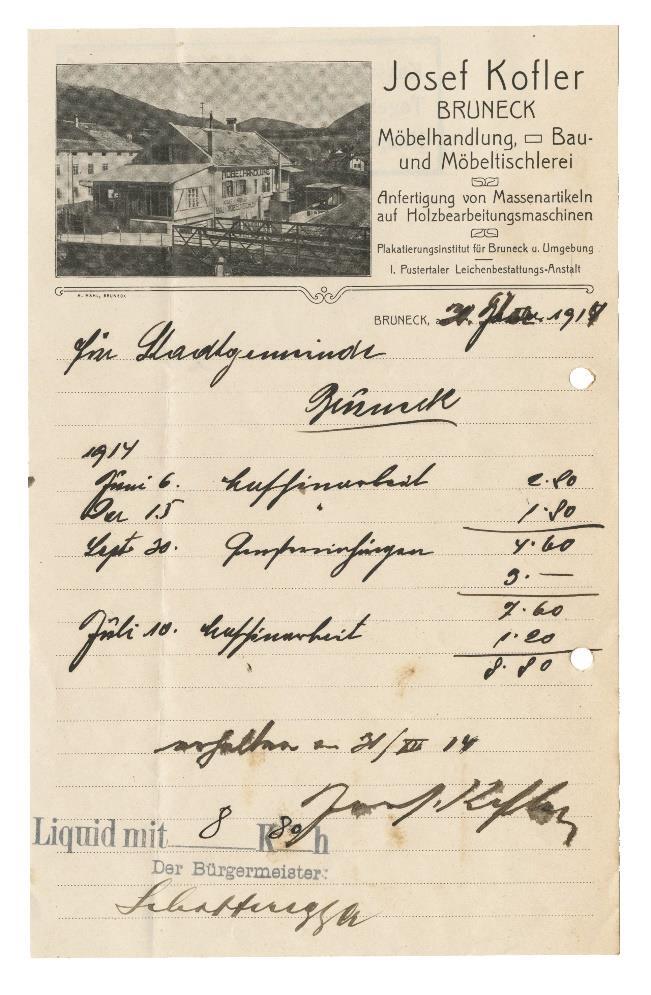 Josef Kofler
BRUNECK
Möbelhandlung, Bau-
und Möbeltischlerei
Anfertigung von Massenartikeln
auf Holzbearbeitungsmaschinen
Plakatierungsinstitut für Bruneck u. Umgebung
I. Pustertaler Leichenbestattungs-Anstalt
MÖBELHANDLUNG
BRUNECK, 191
Für Stadtgemeinde
Bruneck
1914
Juni 6. 2.80
Dez 15 " 1.80
Sept. 30. 4.60
3.—
7.60
Juli 10. 1.20
8.80
erhalten am 31/XII 14
Josef Kofler
Liquid mit 8 K 80 h
Der Bürgermeister: